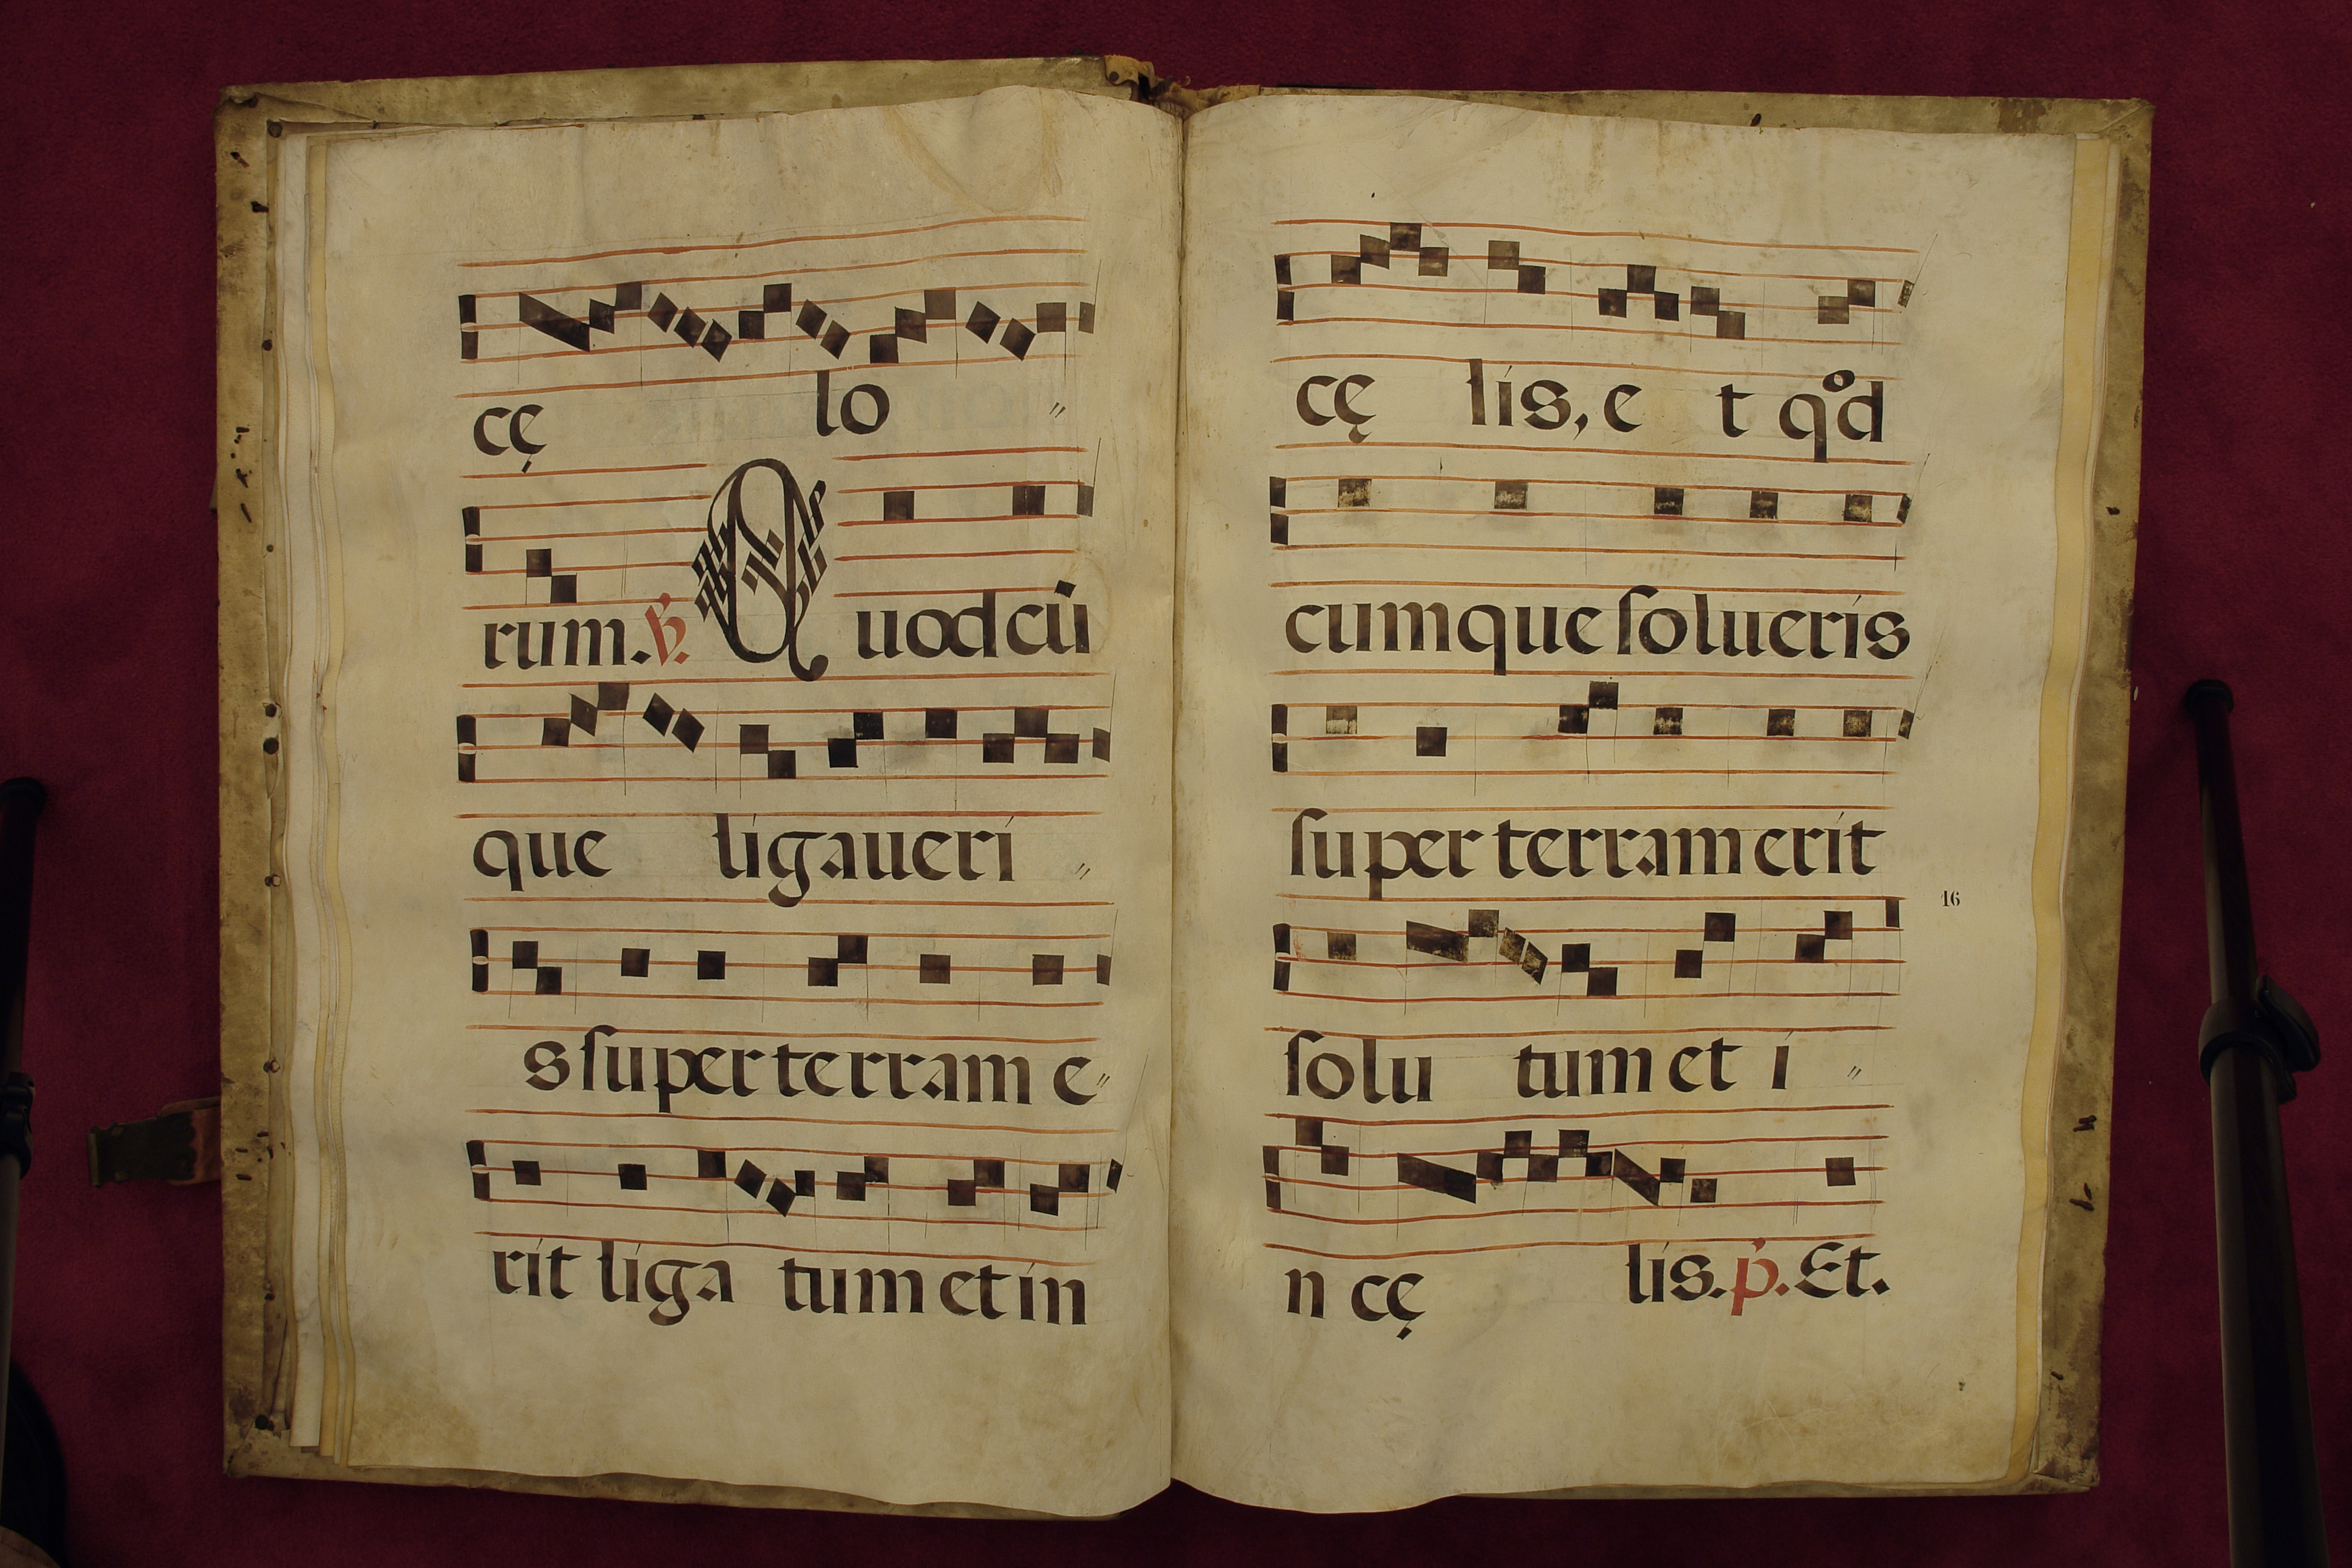 cę lo〃
rum. ℣. Quodcū
que ligaueri〃
s ſuper terram e〃
rit liga tum et in
cę lis, e t qͦd
cumque ſolueris
ſuper terram erit
16
ſolu tum et i〃
n cę lis. p̃. Et.